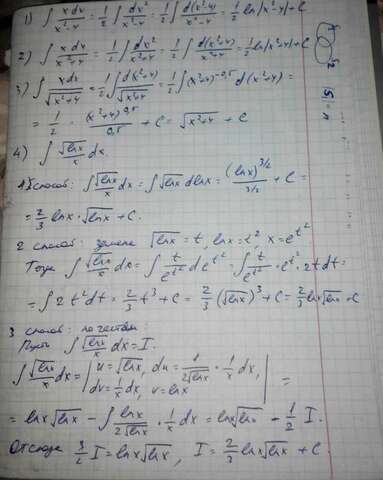 1) ∫ x dx / (x²-4) = 1/2 ∫ dx² / (x²-4) = 1/2 ∫ d(x²-4) / (x²-4) = 1/2 ln|x²-4| + C
2) ∫ x dx / (x²+4) = 1/2 ∫ dx² / (x²+4) = 1/2 ∫ d(x²+4) / (x²+4) = 1/2 ln|x²+4| + C
3) ∫ x dx / √(x²+4) = 1/2 ∫ d(x²+4) / √(x²+4) = 1/2 ∫ (x²+4)^(-0,5) d(x²+4) =
= 1/2 · (x²+4)^(0,5) / 0,5 + C = √(x²+4) + C
4) ∫ √(ln x) / x dx.
1 способ: ∫ √(ln x) / x dx = ∫ √(ln x) d ln x = (ln x)^(3/2) / (3/2) + C =
= 2/3 ln x · √(ln x) + C.
2 способ: замена √(ln x) = t, ln x = t², x = e^(t²)
Тогда ∫ √(ln x) / x dx = ∫ t / e^(t²) d e^(t²) = ∫ t / e^(t²) · e^(t²) · 2t dt =
= ∫ 2t² dt = 2/3 t³ + C = 2/3 (√(ln x))³ + C = 2/3 ln x √(ln x) + C
3 способ: по частям:
Пусть ∫ √(ln x) / x dx = I.
∫ √(ln x) / x dx = | u = √(ln x), du = 1 / (2√(ln x)) · 1/x dx, dv = 1/x dx, v = ln x | =
= ln x √(ln x) - ∫ ln x / (2√(ln x)) · 1/x dx = ln x √(ln x) - 1/2 I.
Отсюда 3/2 I = ln x √(ln x), I = 2/3 ln x √(ln x) + C.